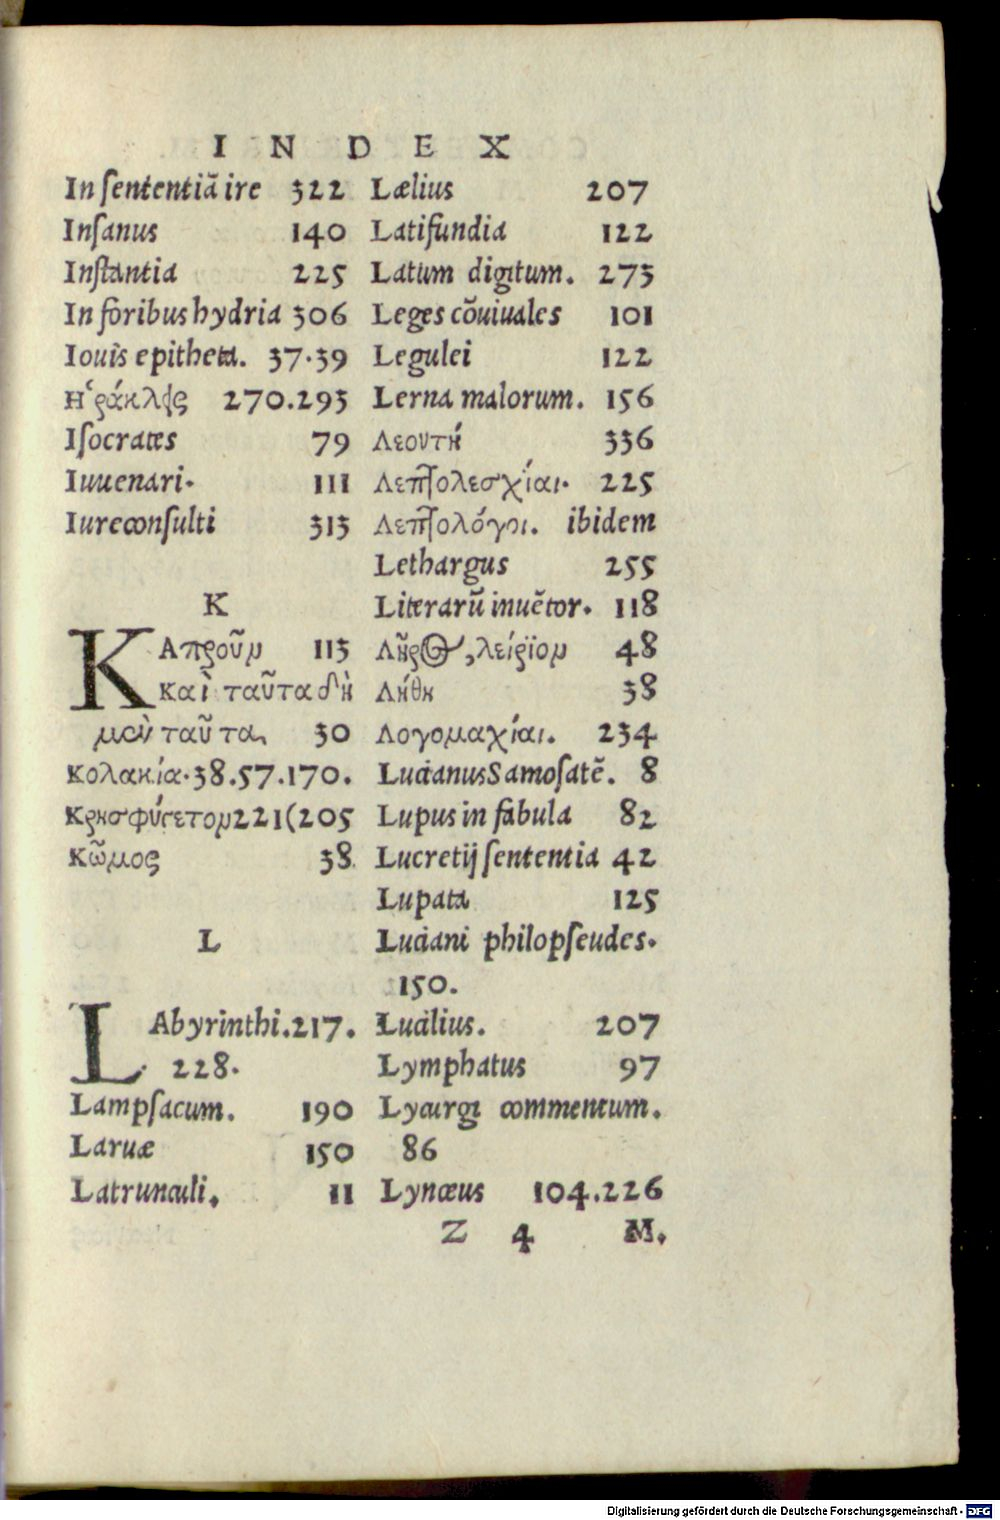 INDEX
In sententiā ire 322
Insanus 140
Instantia 225
In foribus hydria 306
Iouis epitheta. 37.39
Ηʽράκλης 270.293
Isocrates 79
Iuuenari. 111
Iureconsulti 313
K
KΑπροῦν 113
καὶ ταῦτα δὴ
μοὶ ταῦτα, 30
κολακία.38.57.170.
κρησφύγετον 221 (205
κῶμος 38
L
LAbyrinthi.217.
228.
Lampsacum. 190
Laruæ 150
Latrunculi. 11
Lælius 207
Latifundia 122
Latum digitum. 273
Leges cōuiuales 101
Legulei 122
Lerna malorum. 156
Λεοντή 336
Λεπτολεσχίαι. 225
Λεπτολόγοι. ibidem
Lethargus 255
Literarū inuētor. 118
Λῆρος, λείριον 48
Λήθη 38
Λογομαχίαι. 234
Lucianus Samosatē. 8
Lupus in fabula 82
Lucretij sententia 42
Lupata 125
Luciani philopseudes.
150.
Lucilius. 207
Lymphatus 97
Lycurgi commentum.
86
Lynceus 104.226
Z 4 M.
Digitalisierung gefördert durch die Deutsche Forschungsgemeinschaft - DFG